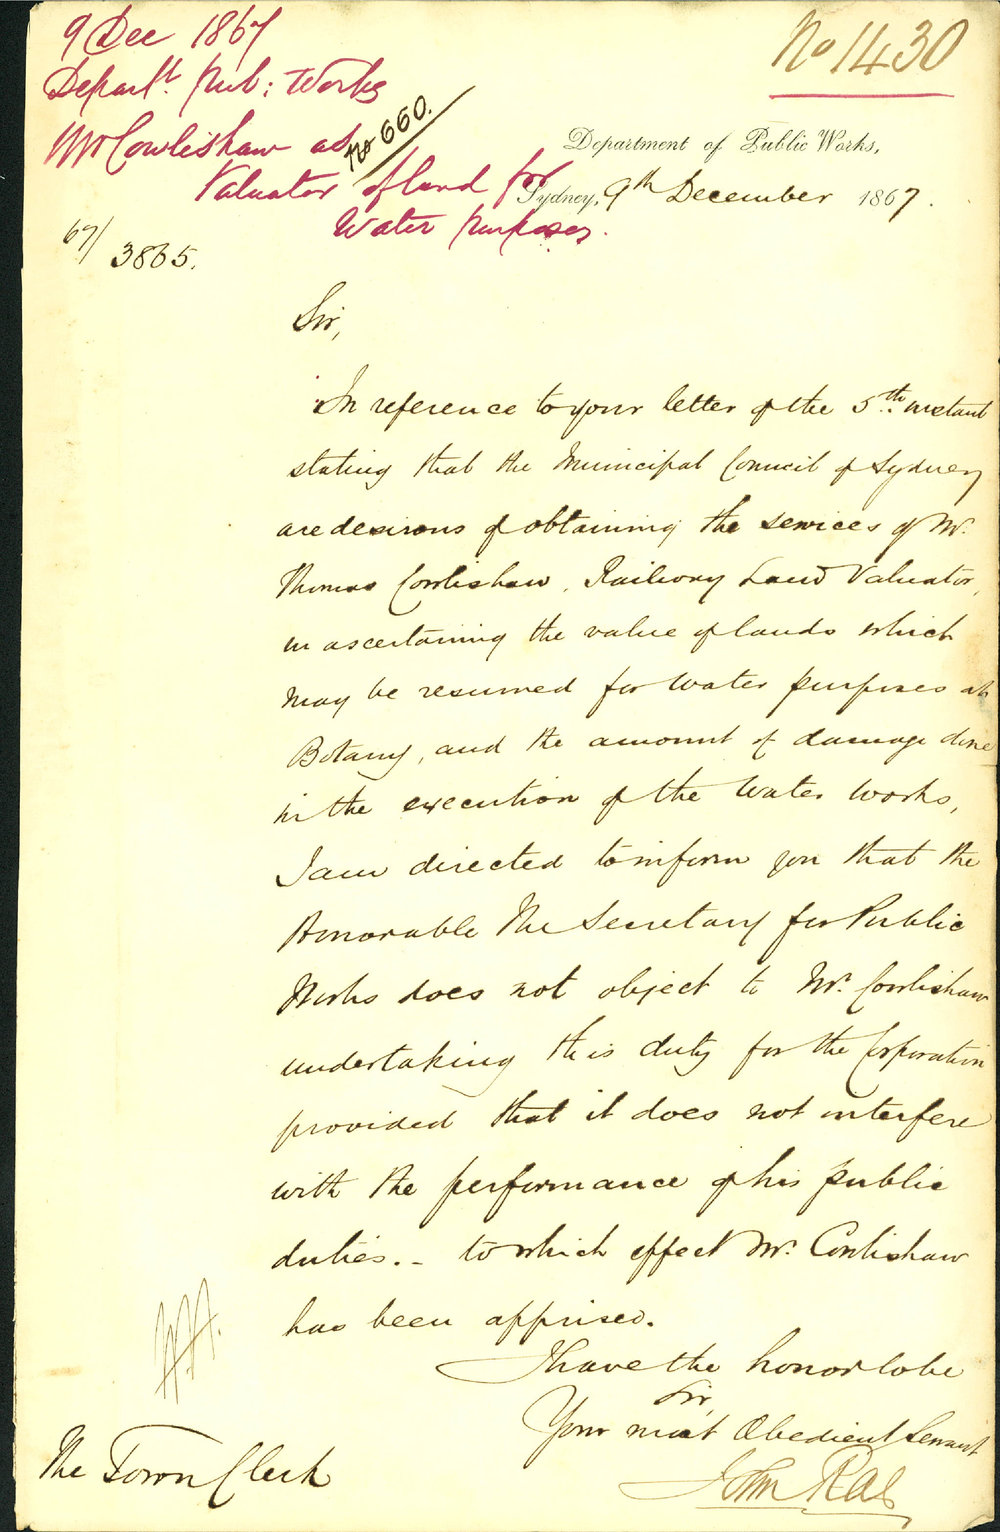 9 Dec 1867
Departt. Pub: Works
Mr Cowlishaw as
Valuator of land for
Water purposes.
No 660.
No 1430
Department of Public Works,
Sydney, 9th December 1867.
67/3865.
Sir,
In reference to your letter of the 5th. instant
stating that the Municipal Council of Sydney
are desirous of obtaining the services of Mr.
Thomas Cowlishaw, Railway Land Valuator,
in ascertaining the value of lands which
may be resumed for water purposes at
Botany, and the amount of damage done
in the execution of the Water Works,
I am directed to inform you that the
Honorable The Secretary for Public
Works does not object to Mr. Cowlishaw
undertaking this duty for the Corporation
provided that it does not interfere
with the performance of his public
duties. - to which effect Mr. Cowlishaw
has been apprised.
I have the honor to be
Sir,
Your most Obedient Servant
John Rae
The Town Clerk